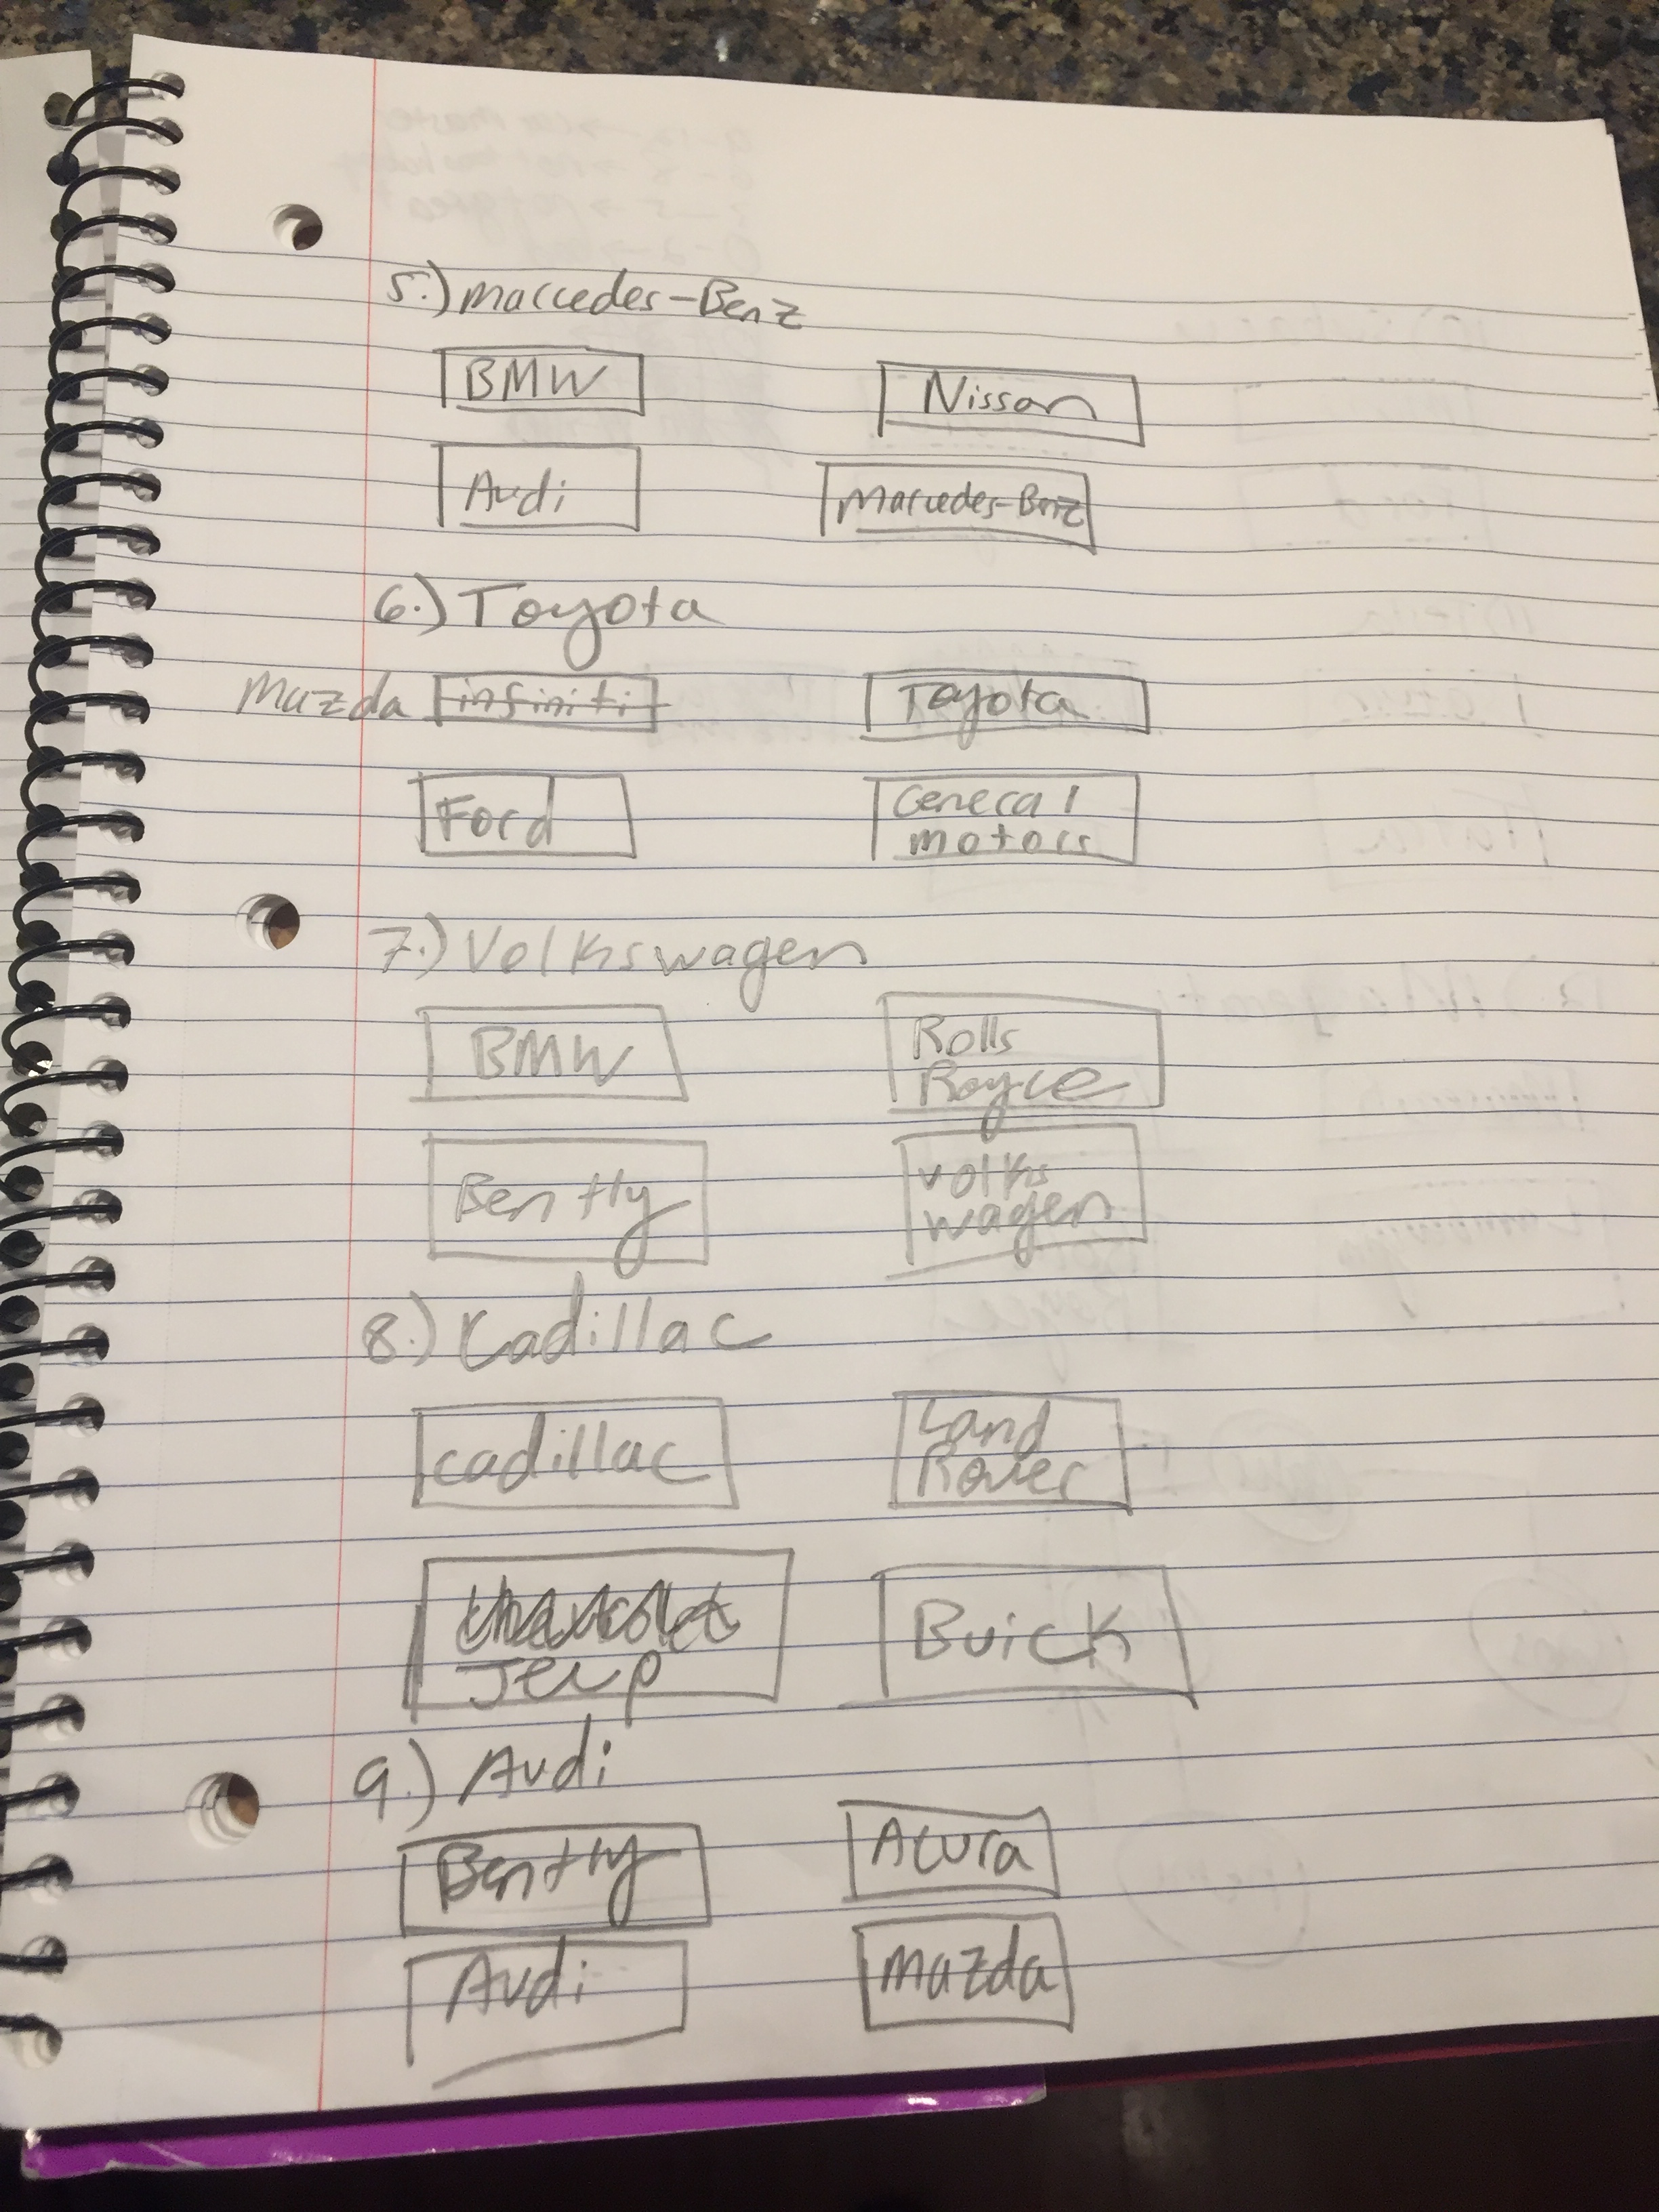 5.) Marcedes-Benz
BMW
Nissan
Audi
Marcedes-Benz
6.) Toyota
Mazda infiniti
Toyota
Ford
General
motors
7.) Volkswagen
BMW
Rolls
Royce
Bently
volks
wagen
8.) Cadillac
cadillac
Land
Rover
Jeep
Buick
9.) Audi
Bently
Acura
Audi
mazda